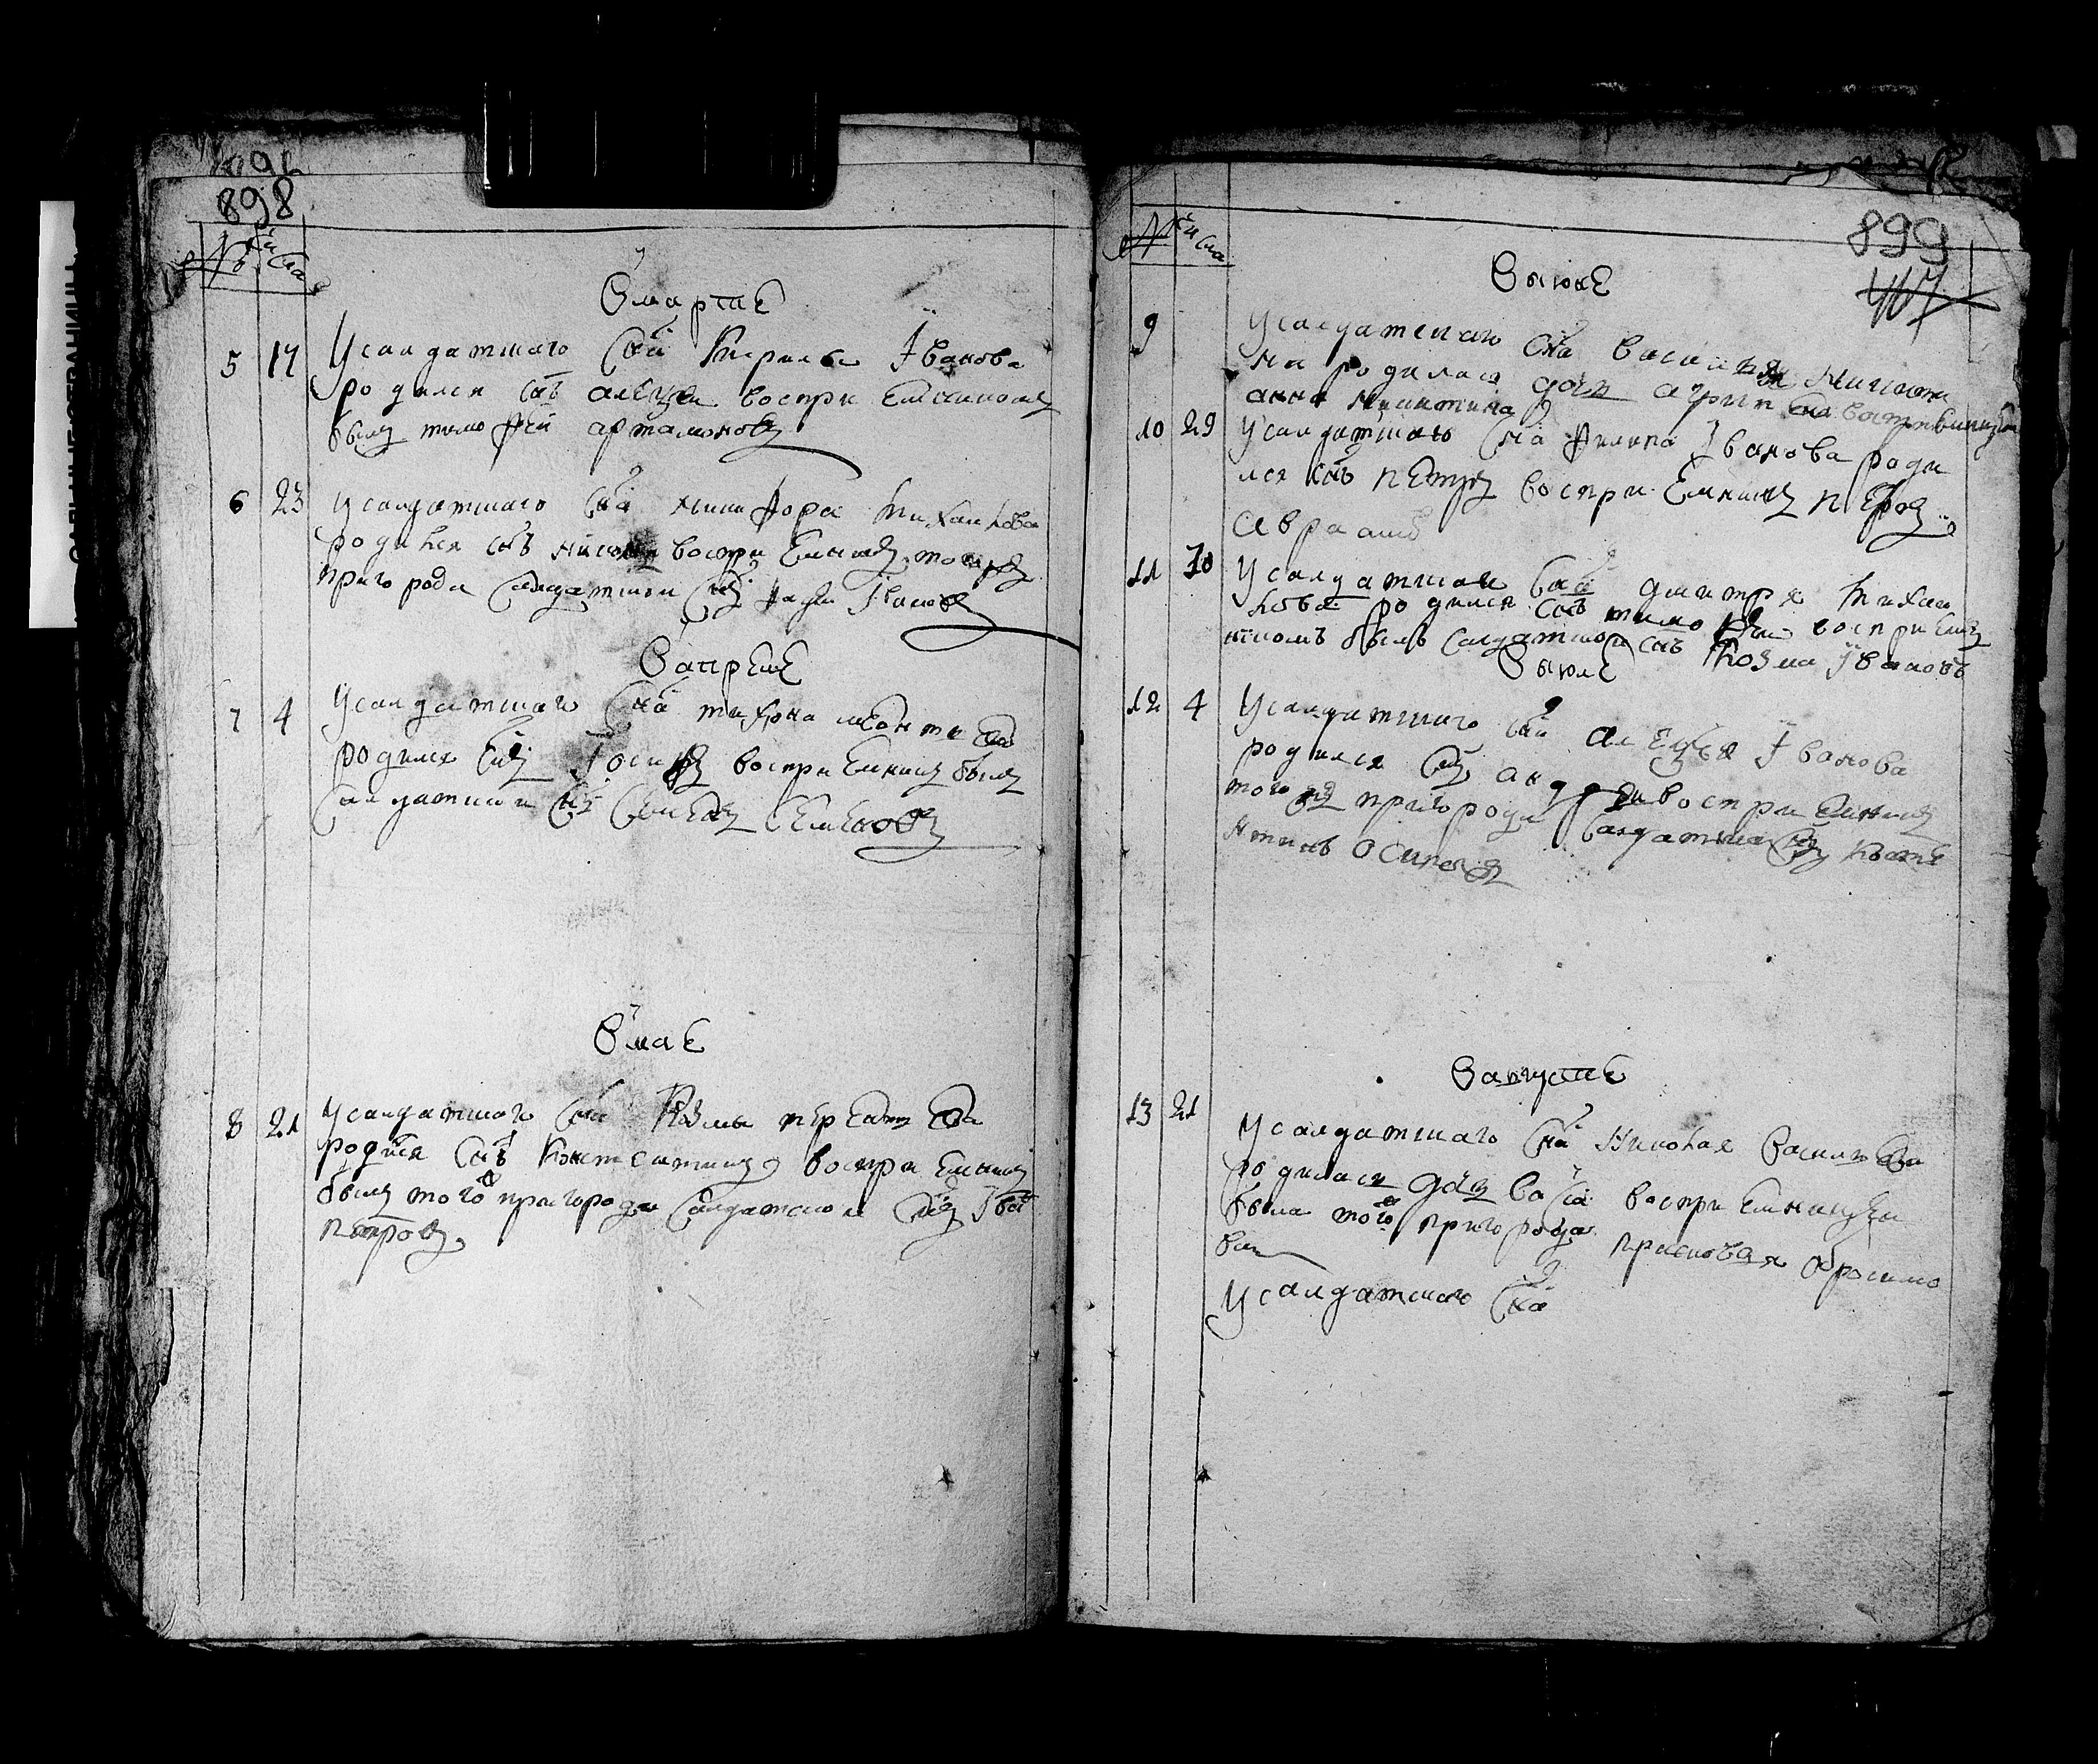 898
№ числа
В марте
5 17 У салдатцкаго сна Кирила Iванова
родился снъ алеѯеи восприемникомъ
былъ тимофеи артамоновъ
6 23 у салдатцкаго сна никифора михаилова
родился снъ никита восприемникъ тогожъ
пригорода салдатцкои снъ Iвановъ
В апреле
7 4 У салдатцкаго сна тихона леонтиева
родился снъ Iосифъ восприемникъ былъ
салдатцкои снъ Семенъ Семеновъ
В мае
8 21 у салдатцкаго сна Козмы
родился снъ Констентинъ восприемникъ
былъ того пригорода салдатской снъ Iванъ
петровъ
899
407
№ числа
В июне
9 У салдатцкаго сна василья Никити
на родилась дочь агрипена восприемница
анна никитина
10 29 У салдатцкаго сна филипа Iванова роди
лся снъ петръ восприемникъ
аврамъ
11 30 У салдатцкаго сна дмитрея михаи
лова родился снъ тимофеи восприем
никомъ былъ салдатцкои снъ Козма Iвановъ
В июле
12 4 У салдатцкаго сна алеѯея Iванова
родился снъ андреи восприемникъ
тогожъ пригорода салдатцкои снъ Косте
нтинъ осиповъ
В августе
13 21 У салдатцкаго сна Николая василева
родилась дочь васа восприемницеи
была того пригорода
ва
У салдатскаго сна